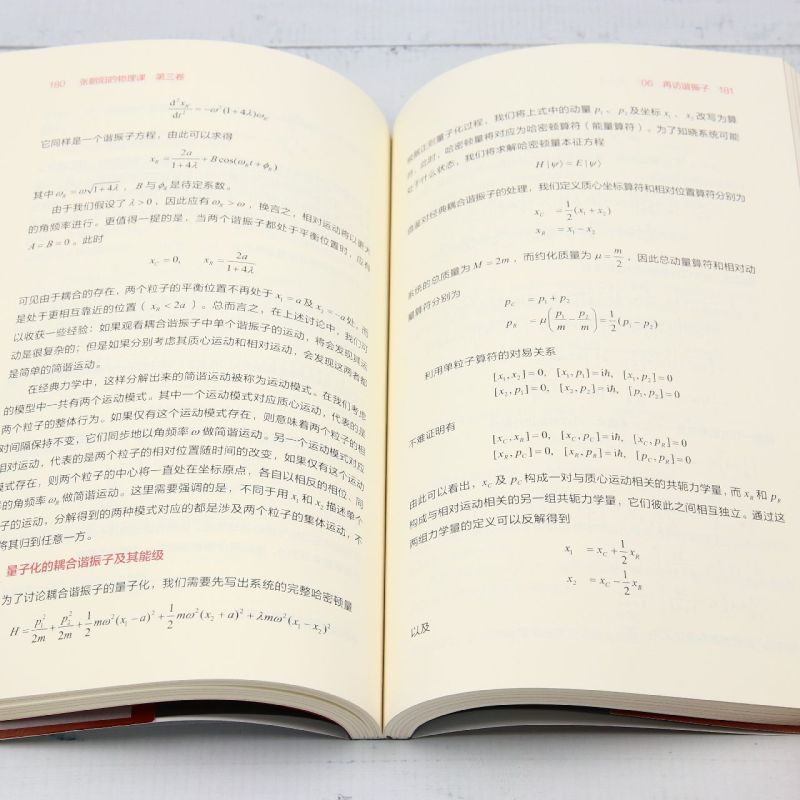 180 张朝阳的物理课 第三卷
d²x_R/dt² = −ω²(1+4λ)ω_R
它同样是一个谐振子方程，由此可以求得
x_R = 2a/(1+4λ) + B cos(ω_R t+ϕ_R)
其中 ω_R = ω√(1+4λ)，B 与 ϕ_R 是待定系数。
由于我们假设了 λ>0，因此应有 ω_R > ω，换言之，相对运动将以更大
的角频率进行。更值得一提的是，当两个谐振子都处于平衡位置时，应有
A = B = 0。此时
x_C = 0, x_R = 2a/(1+4λ)
可见由于耦合的存在，两个粒子的平衡位置不再处于 x₁ = a 及 x₂ = −a 处，而
是处于更相互靠近的位置（x_R < 2a）。总而言之，在上述讨论中，我们可
以收获一些经验：如果观看耦合谐振子中单个谐振子的运动，将会发现其运
动是很复杂的；但是如果分别考虑其质心运动和相对运动，会发现这两者都
是简单的简谐运动。
在经典力学中，这样分解出来的简谐运动被称为运动模式。在我们考虑
的模型中一共有两个运动模式。其中一个运动模式对应质心运动，代表的是
两个粒子的整体行为。如果仅有这个运动模式存在，则意味着两个粒子的相
对间隔保持不变，它们同步地以角频率 ω 做简谐运动。另一个运动模式对应
相对运动，代表的是两个粒子的相对位置随时间的改变，如果仅有这个运动
模式存在，则两个粒子的中心将一直处在坐标原点，各自以相反的相位、同
的角频率 ω_R 做简谐运动。这里需要强调的是，不同于用 x₁ 和 x₂ 描述单个
子的运动，分解得到的两种模式对应的都是涉及两个粒子的集体运动，不
将其归到任意一方。
量子化的耦合谐振子及其能级
为了讨论耦合谐振子的量子化，我们需要先写出系统的完整哈密顿量
H = p₁²/2m + p₂²/2m + 1/2 mω²(x₁−a)² + 1/2 mω²(x₂+a)² + λmω²(x₁−x₂)²
06 再访谐振子 181
正则量子化过程，我们将上式中的动量 p₁、及坐标 x₁、x₂ 改写为算
此时，哈密顿量将对应为哈密顿算符（能量算符）。为了知晓系统可能
处于什么状态，我们将求解哈密顿量本征方程
H|ψ⟩ = E|ψ⟩
对经典耦合谐振子的处理，我们定义质心坐标算符和相对位置算符分别为
x_C = 1/2 (x₁ + x₂)
x_R = x₁ − x₂
系统的总质量为 M = 2m，而约化质量为 μ = m/2，因此总动量算符和相对动
量算符分别为
p_C = p₁ + p₂
p_R = μ(p₁/m − p₂/m) = 1/2 (p₁ − p₂)
利用单粒子算符的对易关系
[x₁, x₂] = 0, [x₁, p₁] = iħ, [x₁, p₂] = 0
[x₂, p₁] = 0, [x₂, p₂] = iħ, [p₁, p₂] = 0
不难证明有
[x_C, x_R] = 0, [x_C, p_C] = iħ, [x_C, p_R] = 0
[x_R, p_C] = 0, [x_R, p_R] = iħ, [p_C, p_R] = 0
由此可以看出，x_C 及 p_C 构成一对与质心运动相关的共轭力学量，而 x_R 和 p_R
构成与相对运动相关的另一组共轭力学量，它们彼此之间相互独立。通过这
两组力学量的定义可以反解得到
x₁ = x_C + 1/2 x_R
x₂ = x_C − 1/2 x_R
以及